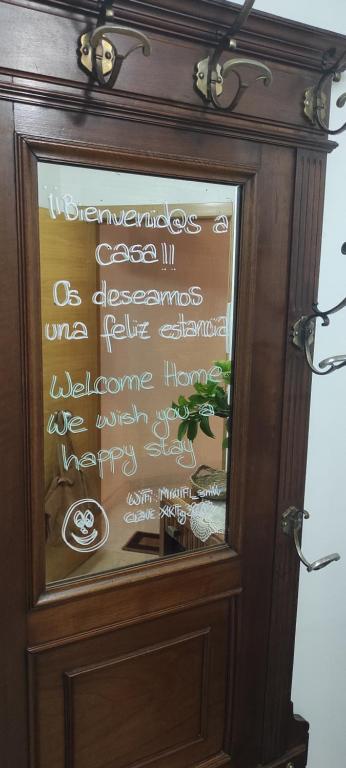 ¡¡Bienvenid@s a
casa!!
Os deseamos
una feliz estancia
Welcome Home
We wish you a
happy stay
WiFi:
CLAVE